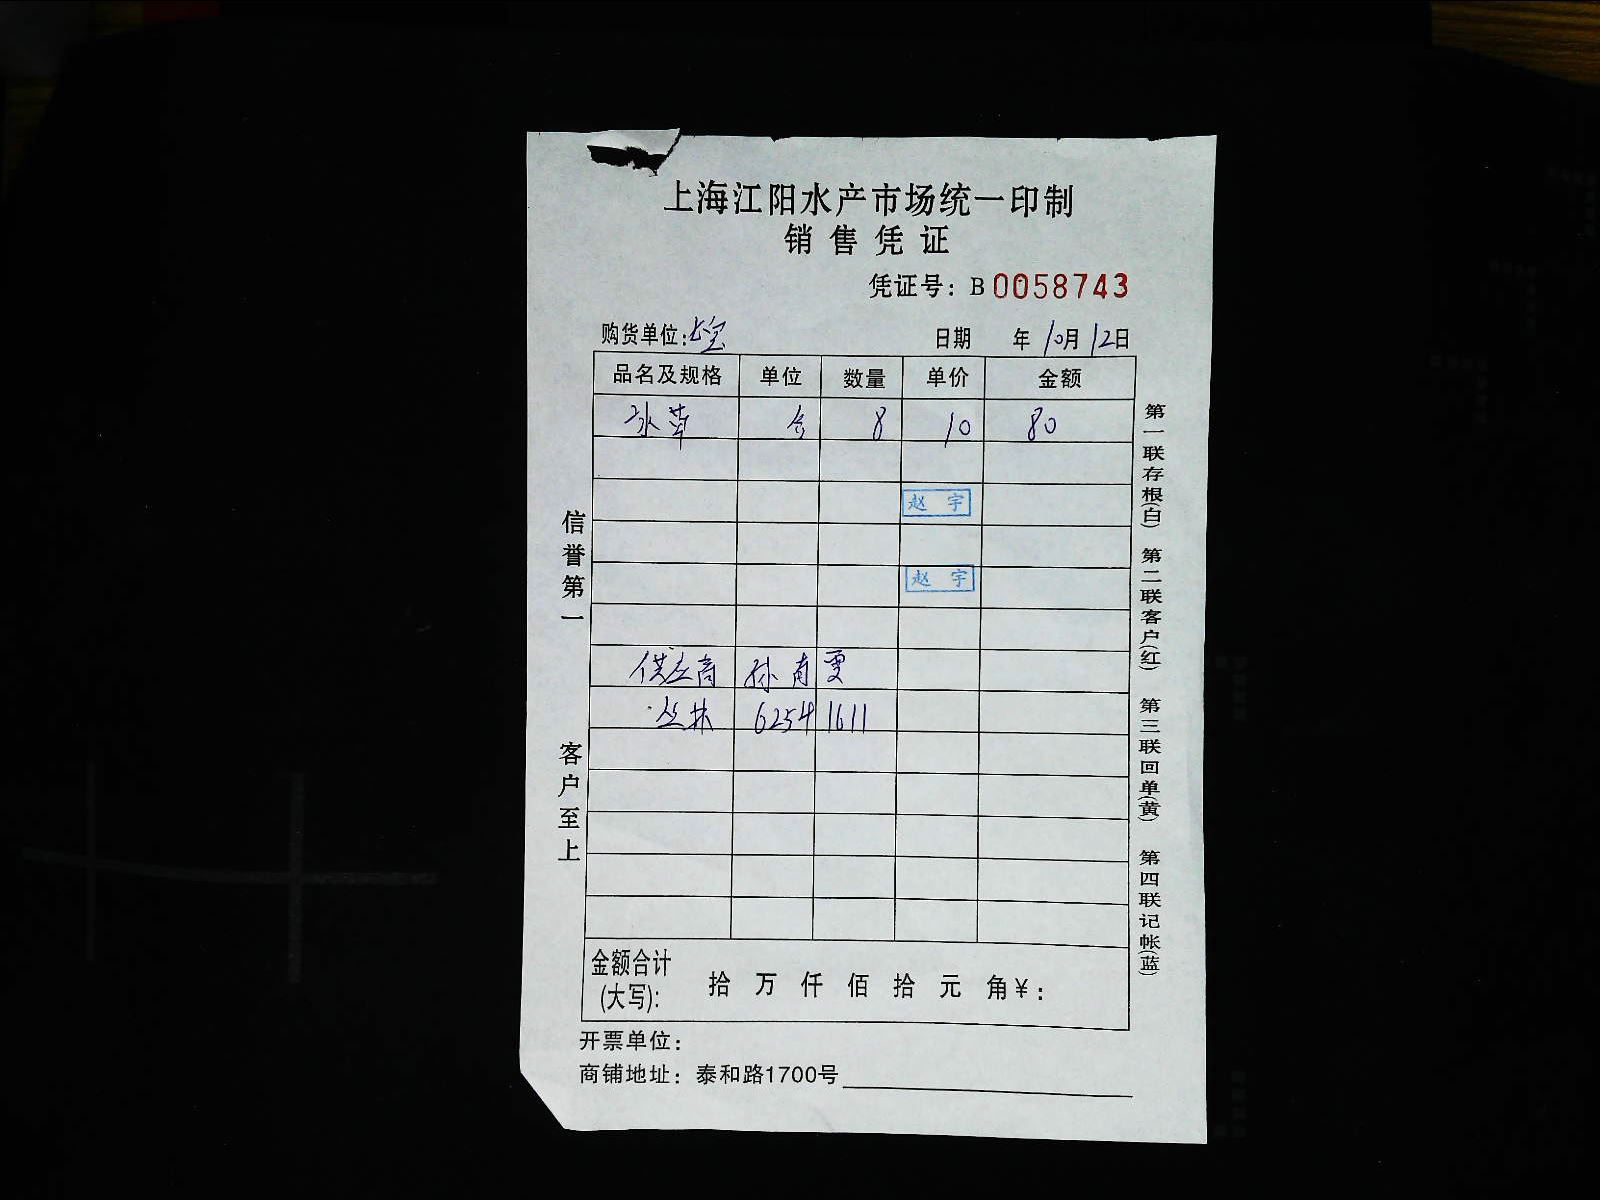 上海江阳水产市场统一印制
销售凭证
凭证号：B0058743
购货单位：
日期 年10月12日
品名及规格 单位 数量 单价 金额
8 10 80
赵宇
赵宇
供应商 孙
丛林 62541611
金额合计
(大写)： 拾 万 仟 佰 拾 元 角¥：
开票单位：
商铺地址：泰和路1700号
信誉第一
客户至上
第一联存根(白) 第二联客户(红) 第三联回单(黄) 第四联记帐(蓝)